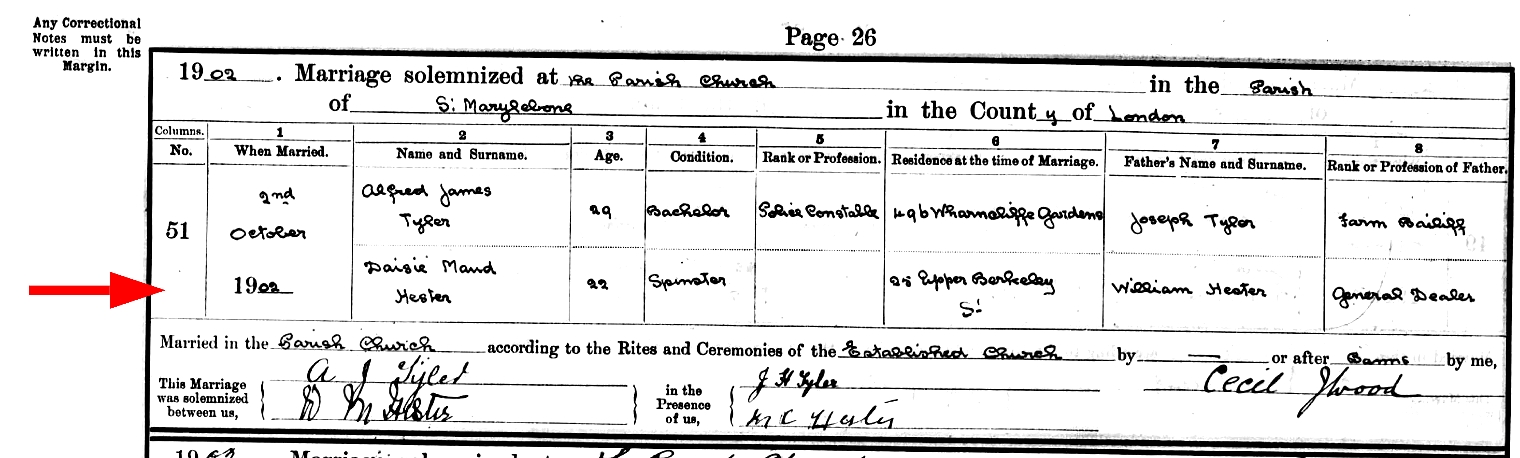 Any Correctional
Notes must be
written in this
Margin.
Page 26
1902. Marriage solemnized at the Parish Church in the Parish
of St Marylebone in the County of London
Columns. 1 2 3 4 5 6 7 8
No. When Married. Name and Surname. Age. Condition. Rank or Profession. Residence at the time of Marriage. Father's Name and Surname. Rank or Profession of Father.
51 2nd October 1902
Alfred James Tyler 29 Bachelor Police Constable 49b Wharncliffe Gardens Joseph Tyler Farm Bailiff
Daisie Maud Hester 22 Spinster 25 Upper Berkeley St William Hester General Dealer
Married in the Parish Church according to the Rites and Ceremonies of the Established Church by — or after Banns by me,
This Marriage was solemnized between us,
A J Tyler
D M Hester
in the Presence of us,
J H Tyler
Hester
Cecil
1902 Marriage